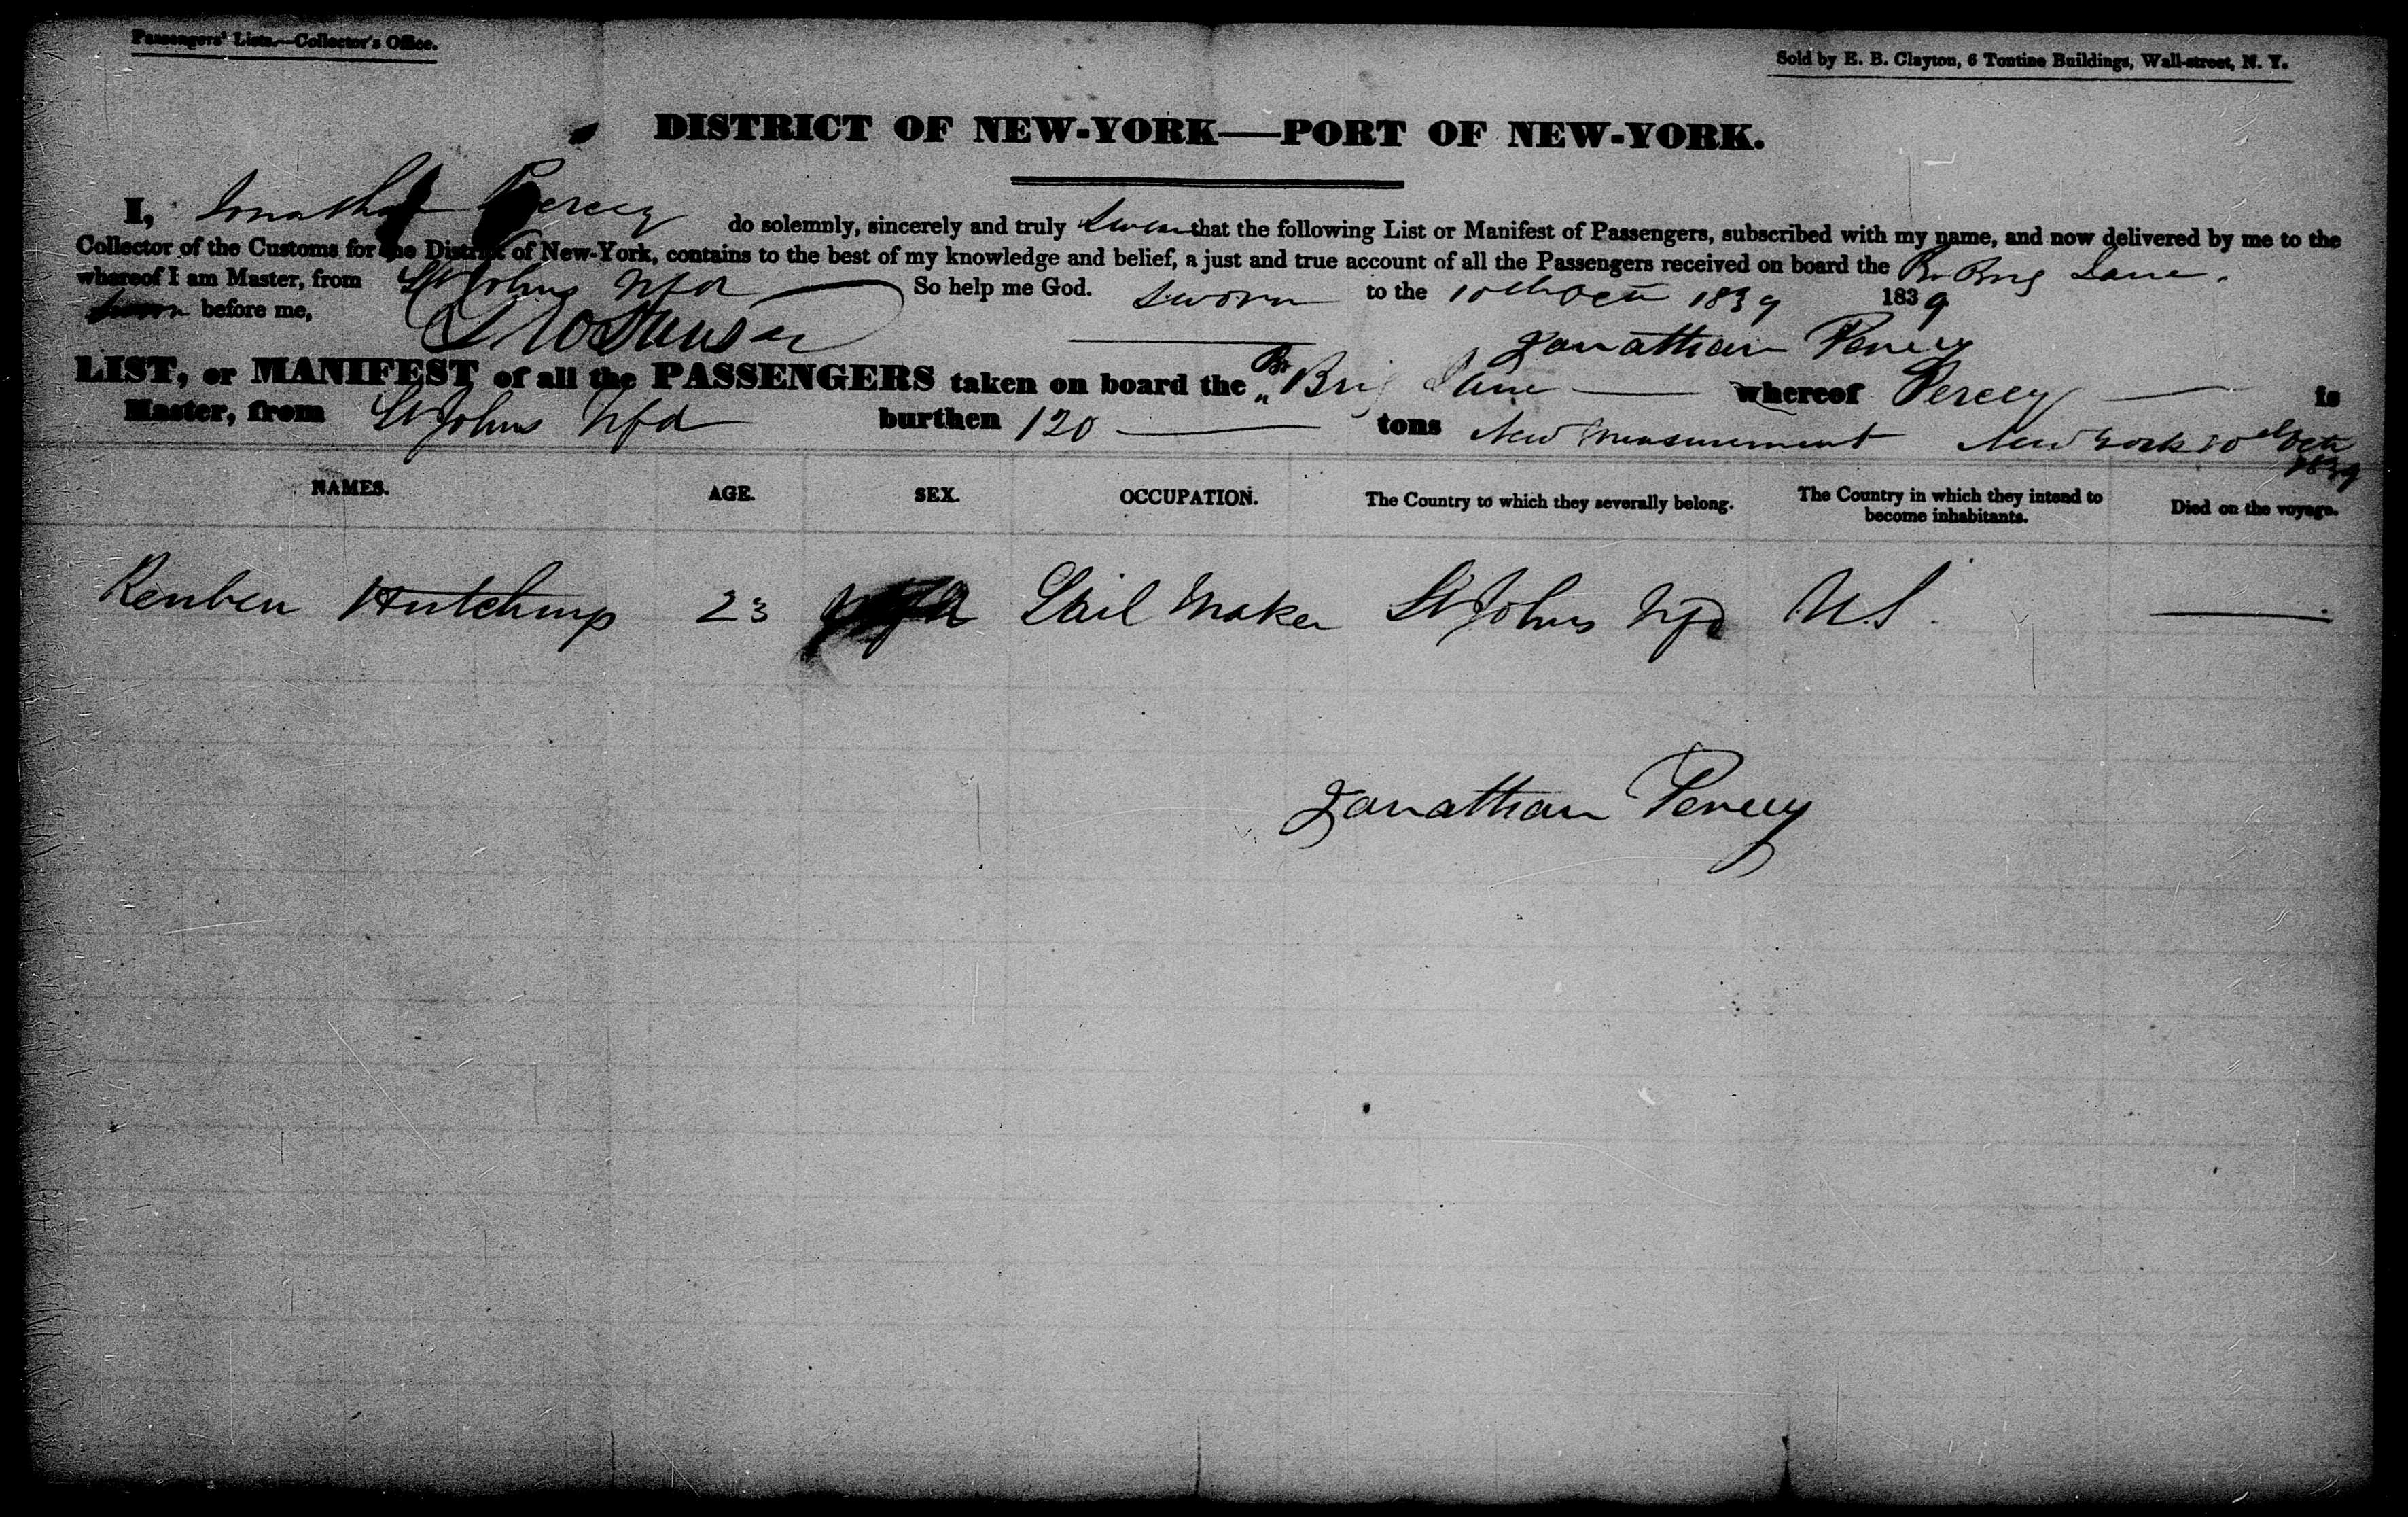 Passengers' Lists.—Collector's Office.
Sold by E. B. Clayton, 6 Tontine Buildings, Wall-street, N. Y.
DISTRICT OF NEW-YORK—PORT OF NEW-YORK.
I, Jonathan Percey do solemnly, sincerely and truly Swear that the following List or Manifest of Passengers, subscribed with my name, and now delivered by me to the
Collector of the Customs for the District of New-York, contains to the best of my knowledge and belief, a just and true account of all the Passengers received on board the Br Brig Jane
whereof I am Master, from St Johns Nfd So help me God. Sworn to the 10th Oct 1839 1839
Sworn before me,
Jonathan Percey
LIST, or MANIFEST of all the PASSENGERS taken on board the Br Brig Jane whereof Percey is
Master, from St Johns Nfd burthen 120 tons New Measurement New York 10th Oct 1839
NAMES. AGE. SEX. OCCUPATION. The Country to which they severally belong. The Country in which they intend to become inhabitants. Died on the voyage.
Reuben Hutchings 23 Sail Maker St Johns Nfd U.S.
Jonathan Percey